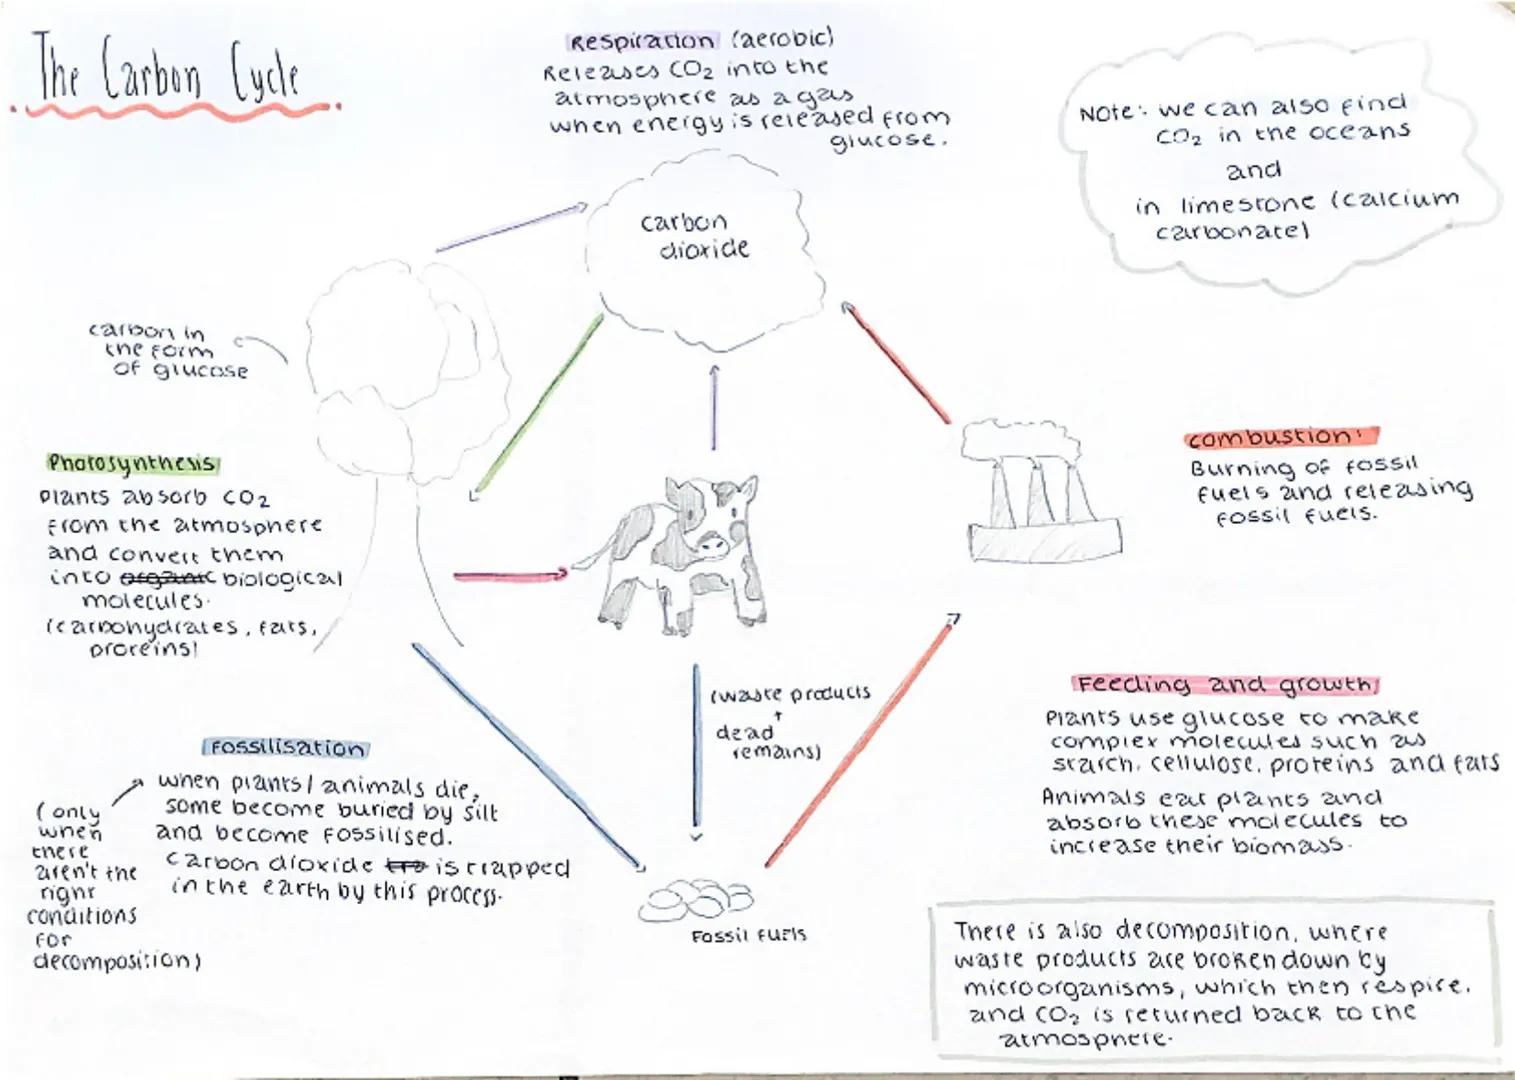 The Carbon Cycle
Respiration (aerobic)
Releases CO₂ into the
atmosphere as a gas
when energy is released from
glucose.
Note: we can also find
CO₂ in the oceans
and
in limestone (calcium
carbonate)
carbon
dioxide
carbon in
the form
of glucose
Photosynthesis
Plants absorb CO₂
from the atmosphere
and convert them
into organic biological
molecules.
(carbohydrates, fats,
proteins)
combustion:
Burning of fossil
fuels and releasing
fossil fuels.
(waste products
+
dead
remains)
Feeding and growth
Plants use glucose to make
complex molecules such as
starch, cellulose, proteins and fats
Animals eat plants and
absorb these molecules to
increase their biomass.
Fossilisation
when plants/animals die,
some become buried by silt
and become fossilised.
carbon dioxide tra is trapped
in the earth by this process.
(only
when
there
aren't the
right
conditions
for
decomposition)
Fossil fuels
There is also decomposition, where
waste products are broken down by
microorganisms, which then respire,
and CO₂ is returned back to the
atmosphere.